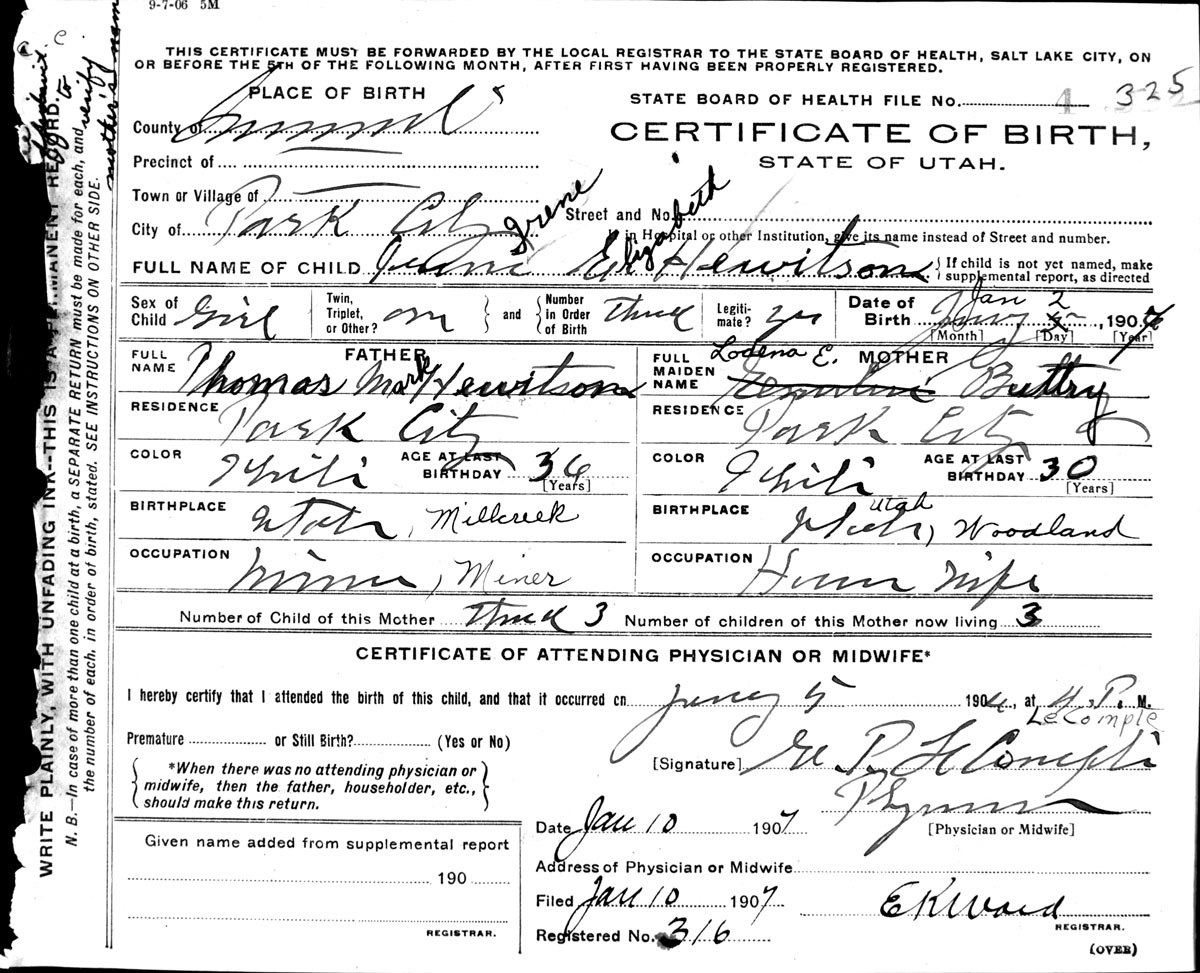 9-7-06 5M
THIS CERTIFICATE MUST BE FORWARDED BY THE LOCAL REGISTRAR TO THE STATE BOARD OF HEALTH, SALT LAKE CITY, ON
OR BEFORE THE 5TH OF THE FOLLOWING MONTH, AFTER FIRST HAVING BEEN PROPERLY REGISTERED.
PLACE OF BIRTH
STATE BOARD OF HEALTH FILE No. 325
County of Summit
CERTIFICATE OF BIRTH,
STATE OF UTAH.
Precinct of
Town or Village of
Street and No.
City of Park City
If in Hospital or other Institution, give its name instead of Street and number.
Irene Elizabeth
FULL NAME OF CHILD Hewitson
If child is not yet named, make
supplemental report, as directed
Sex of Child Girl
Twin, Triplet, or Other? and Number in Order of Birth third
Legitimate? yes
Date of Birth Jan 2, 1907
[Month] [Day] [Year]
FATHER
FULL NAME Thomas Mark Hewitson
RESIDENCE Park City
COLOR White AGE AT LAST BIRTHDAY 36
[Years]
BIRTHPLACE Utah, Millcreek
OCCUPATION Miner, Miner
MOTHER
FULL MAIDEN NAME Lodena E. Buttry
RESIDENCE Park City
COLOR White AGE AT LAST BIRTHDAY 30
[Years]
BIRTHPLACE Utah Utah, Woodland
OCCUPATION House Wife
Number of Child of this Mother third 3 Number of children of this Mother now living 3
CERTIFICATE OF ATTENDING PHYSICIAN OR MIDWIFE*
I hereby certify that I attended the birth of this child, and that it occurred on 190 , at 4 P. M.
LeCompte
Premature or Still Birth? (Yes or No)
[Signature] P. LeCompte
*When there was no attending physician or
midwife, then the father, householder, etc.,
should make this return.
Physician
[Physician or Midwife]
Date Jan 10 1907
Given name added from supplemental report
190
REGISTRAR.
Address of Physician or Midwife
Filed Jan 10 1907
E K Ward
REGISTRAR.
Registered No. 316
(OVER)
WRITE PLAINLY, WITH UNFADING INK--THIS IS A PERMANENT RECORD.
N. B.—In case of more than one child at a birth, a SEPARATE RETURN must be made for each, and
the number of each, in order of birth, stated. SEE INSTRUCTIONS ON OTHER SIDE.
to
verify
mother's name